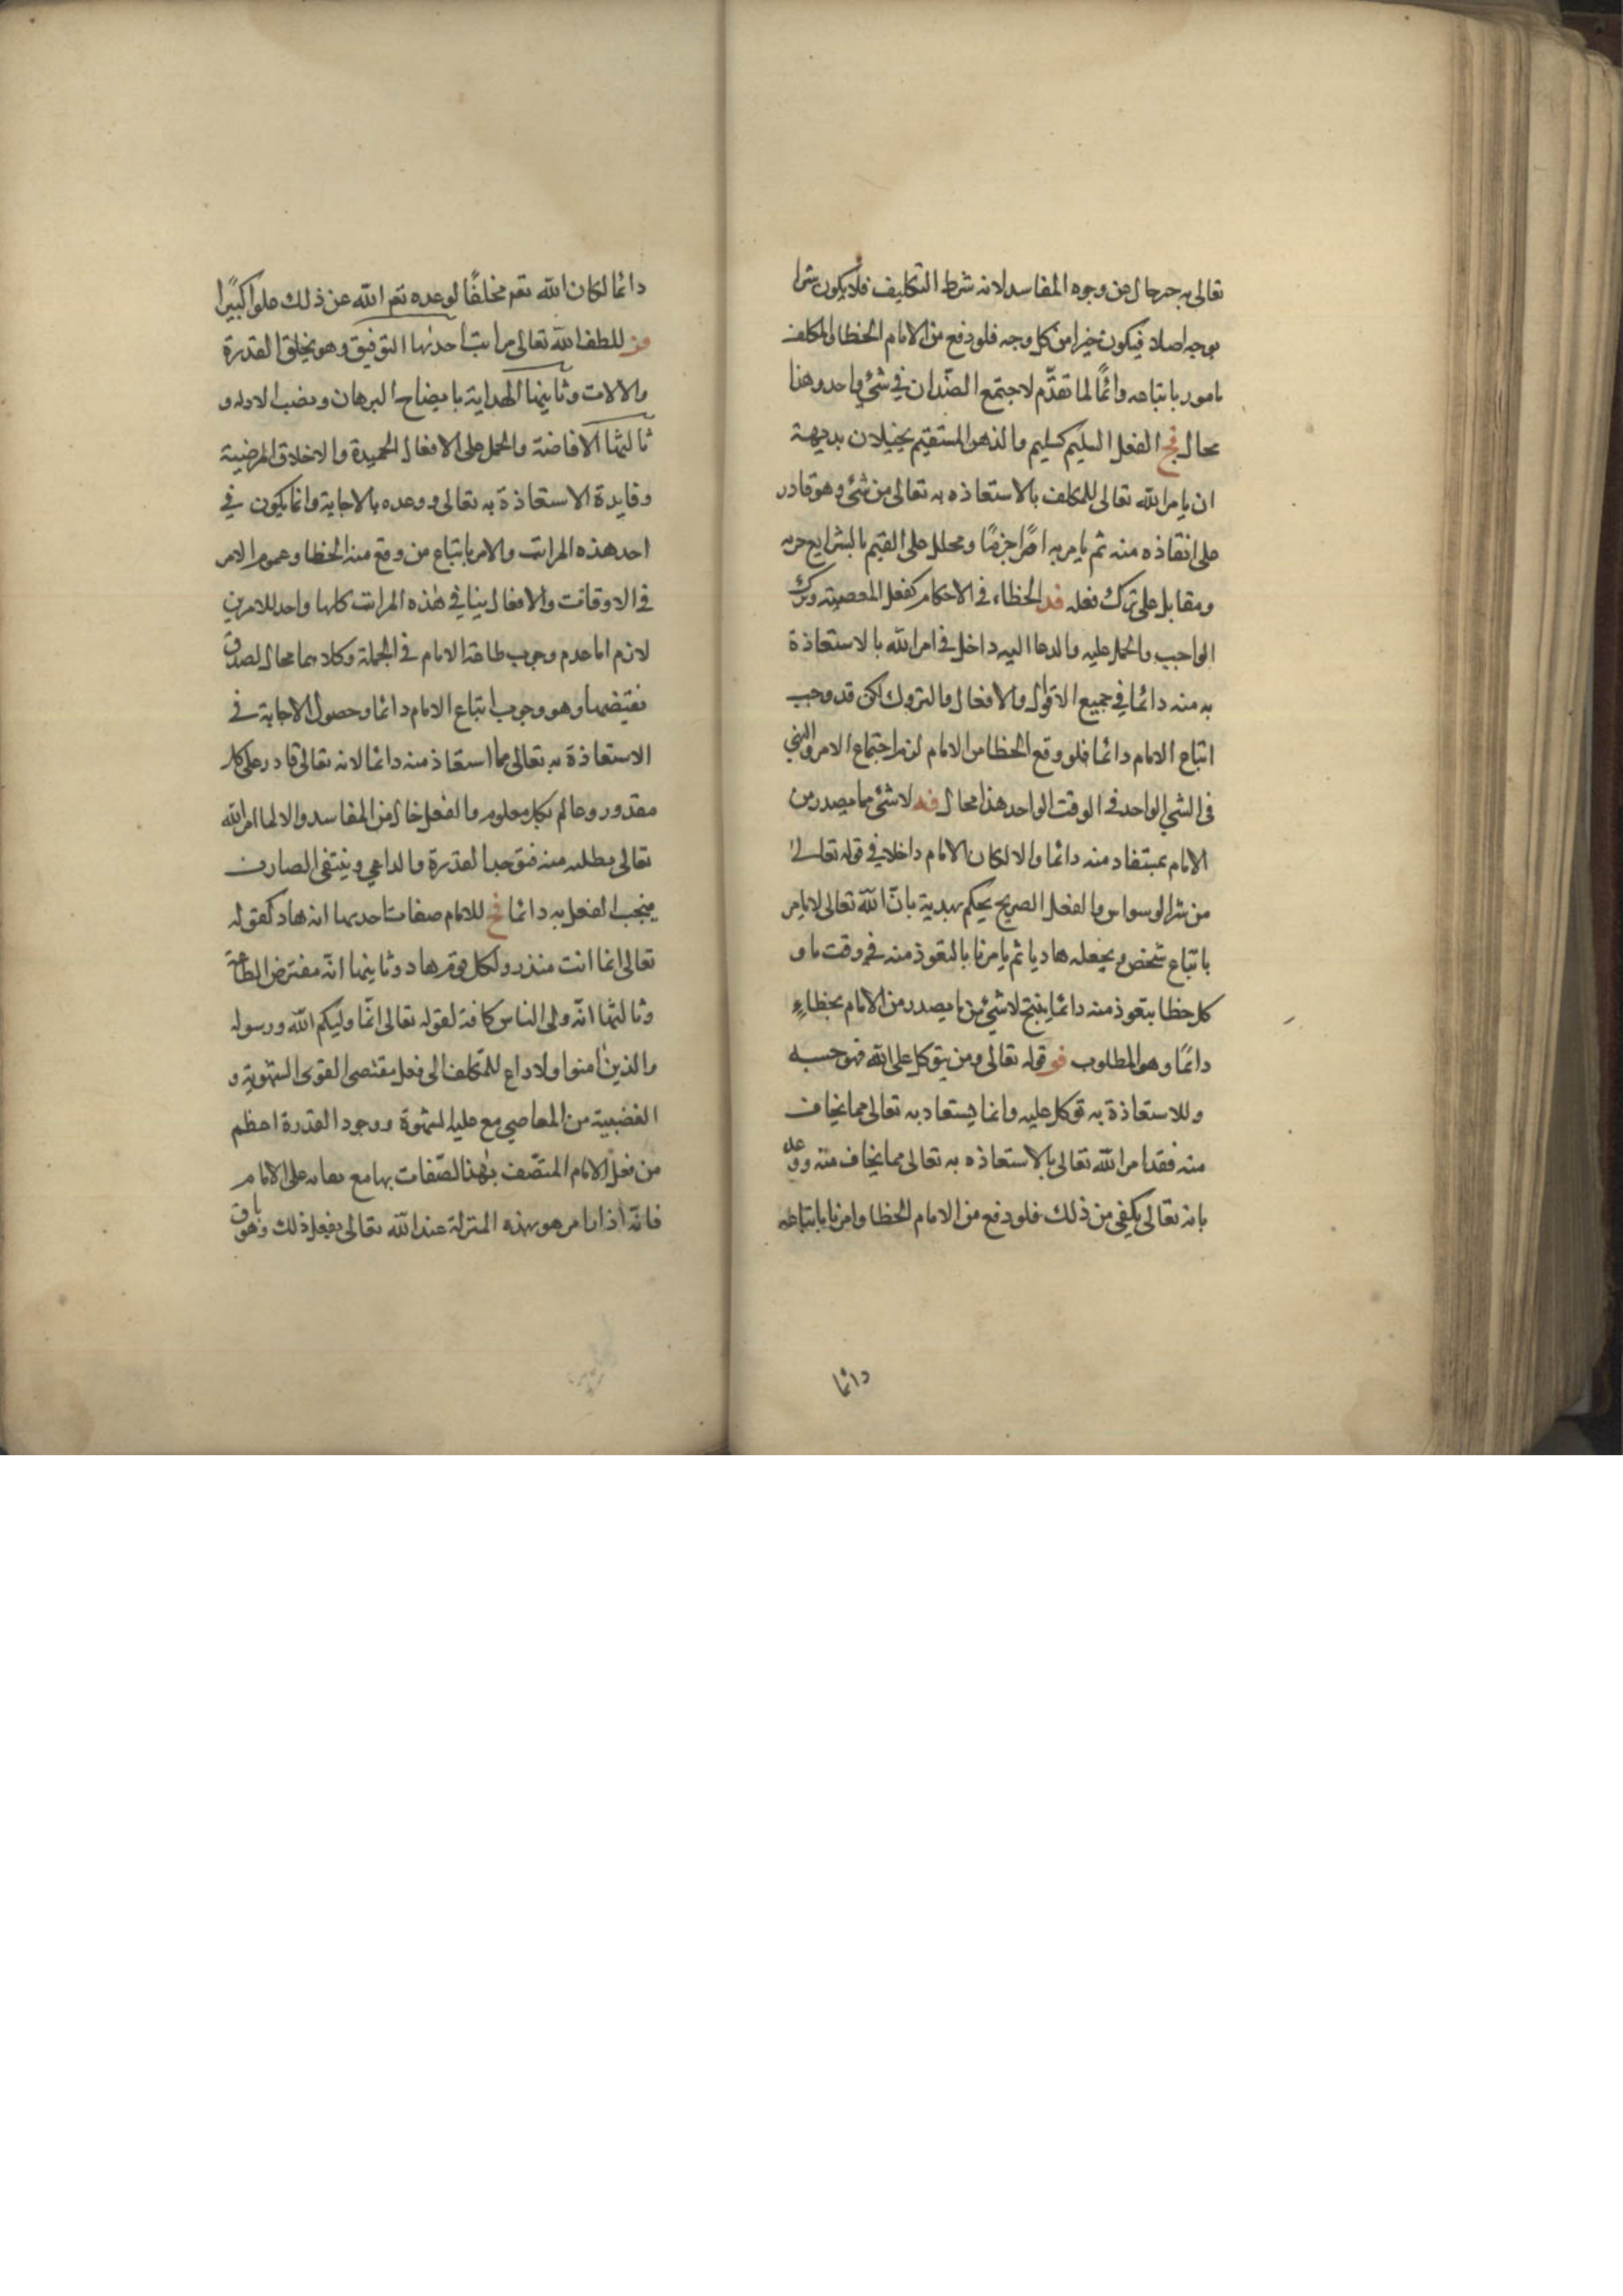 تعالى به خير خال من وجوه المفاسد لانه شرط التكليف فلا يكون شرا
بوجه اصلا فيكون خيرا من كل وجه فلو وقع من الامام الخطا والمكلف
مامور باتباعه دائمًا لما تقدّم لاجتمع الضّدان في شئ واحد وهذا
محال فج العقل السليم كسليم والذهن المستقيم يحيلان بديهة
ان يامر الله تعالى للمكلف بالاستعاذه به تعالى من شئ وهو قادر
على انقاذه منه ثم يامر به امرًا جزمًا
ومقابل على ترك فعله فد الخطاء في الاحكام كفعل المعصية وترك
الواجب والحمل عليه والدعا اليه داخل في امر الله بالاستعاذة
به منه دائما في جميع الاقوال والافعال والتروك لكن قد وجب
اتباع الامام دائما فلو وقع الخطا من الامام لزم اجتماع الامر والنهي
فى الشي الواحد فى الوقت الواحد هذا محال فه لا شئ مما يصدر من
الامام بمستفاد منه دائما والا لكان الامام داخلا في قوله تعالى
من شر الوسواس والعقل الصريح يحكم بهدية بانّ الله تعالى لا يامر
باتباع شخص ويجعله هاديا ثم يامرنا بالتعوذ منه في وقت ما و
كل خطا يتعوذ منه دائما ينتج لا شئ من ما يصدر من الامام بخطاءٍ
دائمًا وهو المطلوب فو قوله تعالى ومن يتوكل على الله فهو حسبه
وللاستعاذة به توكل عليه وانما يستعاد به تعالى مما يخاف
منه فقد امر الله تعالى بالاستعاذه به تعالى مما يخاف منه ووعد
بانه تعالى يكفي من ذلك فلو وقع من الامام الخطا وامرنا باتباعه
دائما
دائما لكان الله تعم مخلفًا لوعده تعم الله عن ذلك علوا كبيًرا
فز للطف الله تعالى مراتب احدىها التوفيق وهو يخلق القدرة
والالات وثانيها الهداية بايضاح البرهان ونصب الادله و
ثالثها الافاضة والحمل على الافعال الحميدة والاخلاق المرضية
وفايدة الاستعاذة به تعالى ووعده بالاجابة وانما يكون في
احد هذه المراتب والامر باتباع من وقع منه الخطا وعموم الامر
فى الاوقات والافعال ينافي هذه المراتب كلها واحد للامرين
لازم اما عدم وجوب طاعة الامام فى الجملة وكلاهما محال لصدق
نقيضهما وهو وجوب اتباع الامام دائما وحصول الاجابة فى
الاستعاذة به تعالى مما استعاذ منه دائما لانه تعالى قادر على كل
مقدور وعالم بكل معلوم والفعل خال من المفاسد والا لما امر الله
تعالى بطلبه منه فتوجب القدرة والداعي وينتفى الصارف
فيجب الفعل به دائما فح للامام صفات احدىها انه هاد كقوله
تعالى انما انت منذر ولكل قوم هاد وثانيها انّه مفترض الطاعة
وثالثها انّه ولى الناس كافة لقوله تعالى انمّا وليكم الله ورسوله
والذين امنوا ولا داع للمكلف الى فعل مقتضى القوى الشهوية و
الغضبية من المعاصي مع غلبة الشهوة ووجود القدرة اعظم
من فعل الامام المتّصف بهذا الصّفات بها مع على الامام
فانّه اذا امر هو بهذه المنزلة عند الله تعالى بفعل ذلك وهو باق